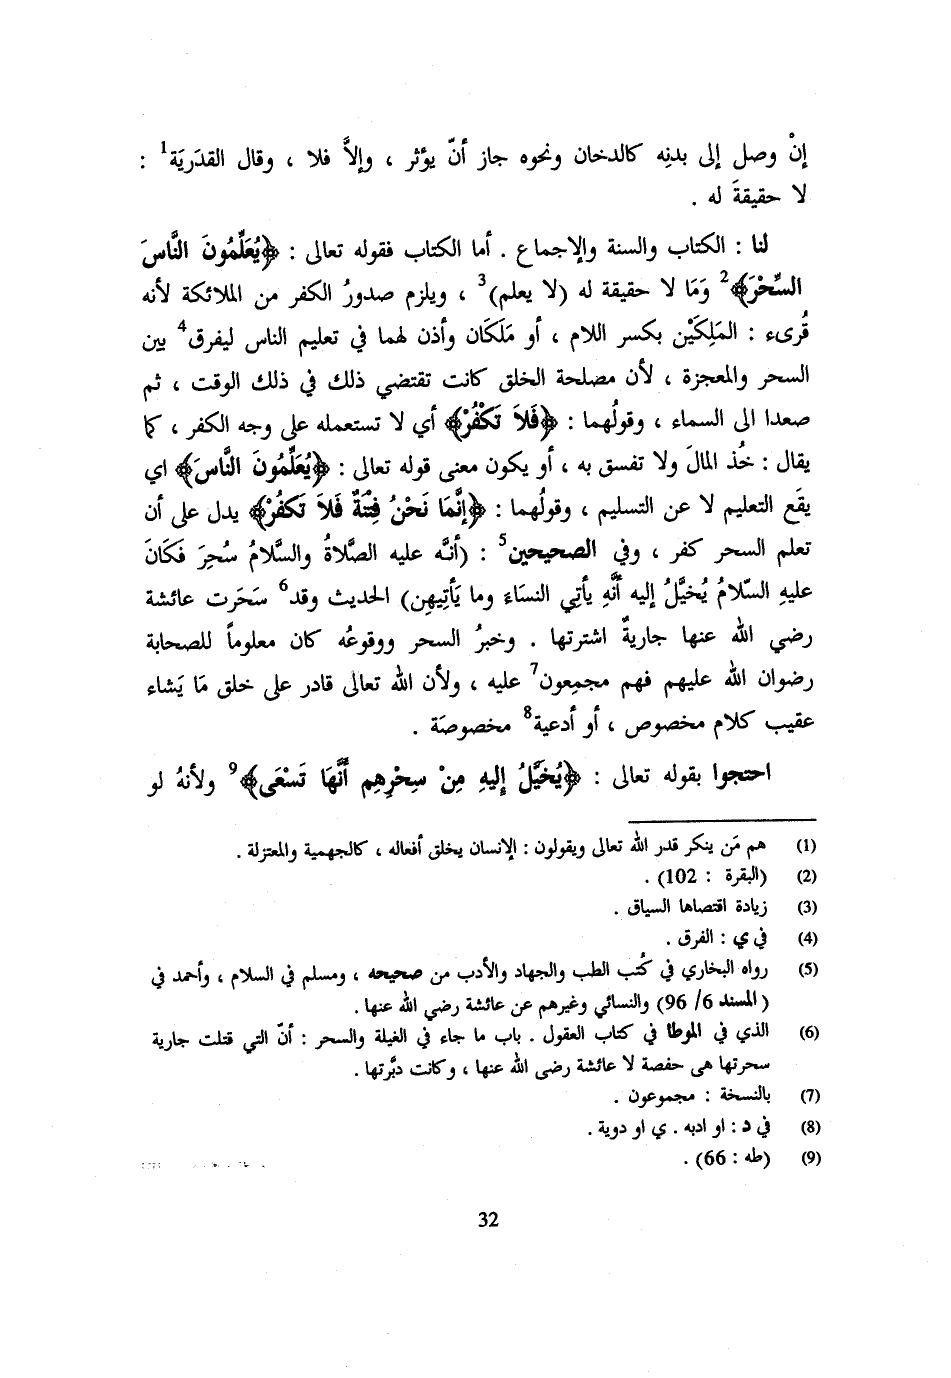 إنْ وصل إلى بدنِه كالدخان ونحوه جاز أنّ يؤثر ، وإلاَّ فلا ، وقال القدَريَة1 :
لا حقيقةَ له .
لنا : الكتاب والسنة والإجماع . أما الكتاب فقوله تعالى : ﴿يُعَلِّمُونَ النَّاسَ
السِّحْرَ﴾2 وَمَا لا حقيقة له (لا يعلم)3 ، ويلزم صدورُ الكفر من الملائكة لأنه
قُرىء : المَلِكَيْن بكسر اللام ، أو مَلَكَان وأذن لهما في تعليم الناس ليفرق4 بين
السحر والمعجزة ، لأن مصلحة الخلق كانت تقتضي ذلك في ذلك الوقت ، ثم
صعدا الى السماء ، وقولُهما : ﴿فَلاَ تَكْفُرْ﴾ أي لا تستعمله على وجه الكفر ، كما
يقال : خُذ المالَ ولا تفسق به ، أو يكون معنى قوله تعالى : ﴿يُعَلِّمُونَ النَّاسَ﴾ اي
يقَع التعليم لا عن التسليم ، وقولُهما : ﴿إنَّمَا نَحْنُ فِتْنَةٌ فَلاَ تَكفُرْ﴾ يدل على أن
تعلم السحر كفر ، وفي الصحيحين5 : (أنَّه عليه الصَّلاةُ والسَّلامُ سُحِرَ فَكَانَ
عليهِ السّلامُ يُخيَّلُ إليه أنَّهِ يأتِي النسَاءَ وما يَأتِيهِن) الحديث وقد6 سَحَرت عائشة
رضي الله عنها جاريةٌ اشترتها . وخبرُ السحر ووقوعُه كان معلوماً للصحابة
رضوان الله عليهم فهم مجمِعون7 عليه ، ولأن الله تعالى قادر على خلق مَا يَشاء
عقيب كلام مخصوص ، أو أدعية8 مخصوصَة .
احتجوا بقوله تعالى : ﴿يُخَيَّلُ إليهِ مِنْ سِحْرِهِم أنَّهَا تَسْعَى﴾9 ولأنهُ لو
(1) هم مَن ينكر قدر الله تعالى ويقولون : الإنسان يخلق أفعاله ، كالجهمية والمعتزلة .
(2) (البقرة : 102) .
(3) زيادة اقتضاها السياق .
(4) في ي : الفرق .
(5) رواه البخاري في كُتب الطب والجهاد والأدب من صحيحه ، ومسلم في السلام ، وأحمد في
(المسند 6/ 96) والنسائي وغيرهم عن عائشة رضي الله عنها .
(6) الذي في الموطا في كتاب العقول . باب ما جاء في الغيلة والسحر : أنّ التي قتلت جارية
سحرتها هى حفصة لا عائشة رضى الله عنها ، وكانت دبَّرتها .
(7) بالنسخة : مجموعون .
(8) في د : او ادبه . ي او دوية .
(9) (طه : 66) .
32